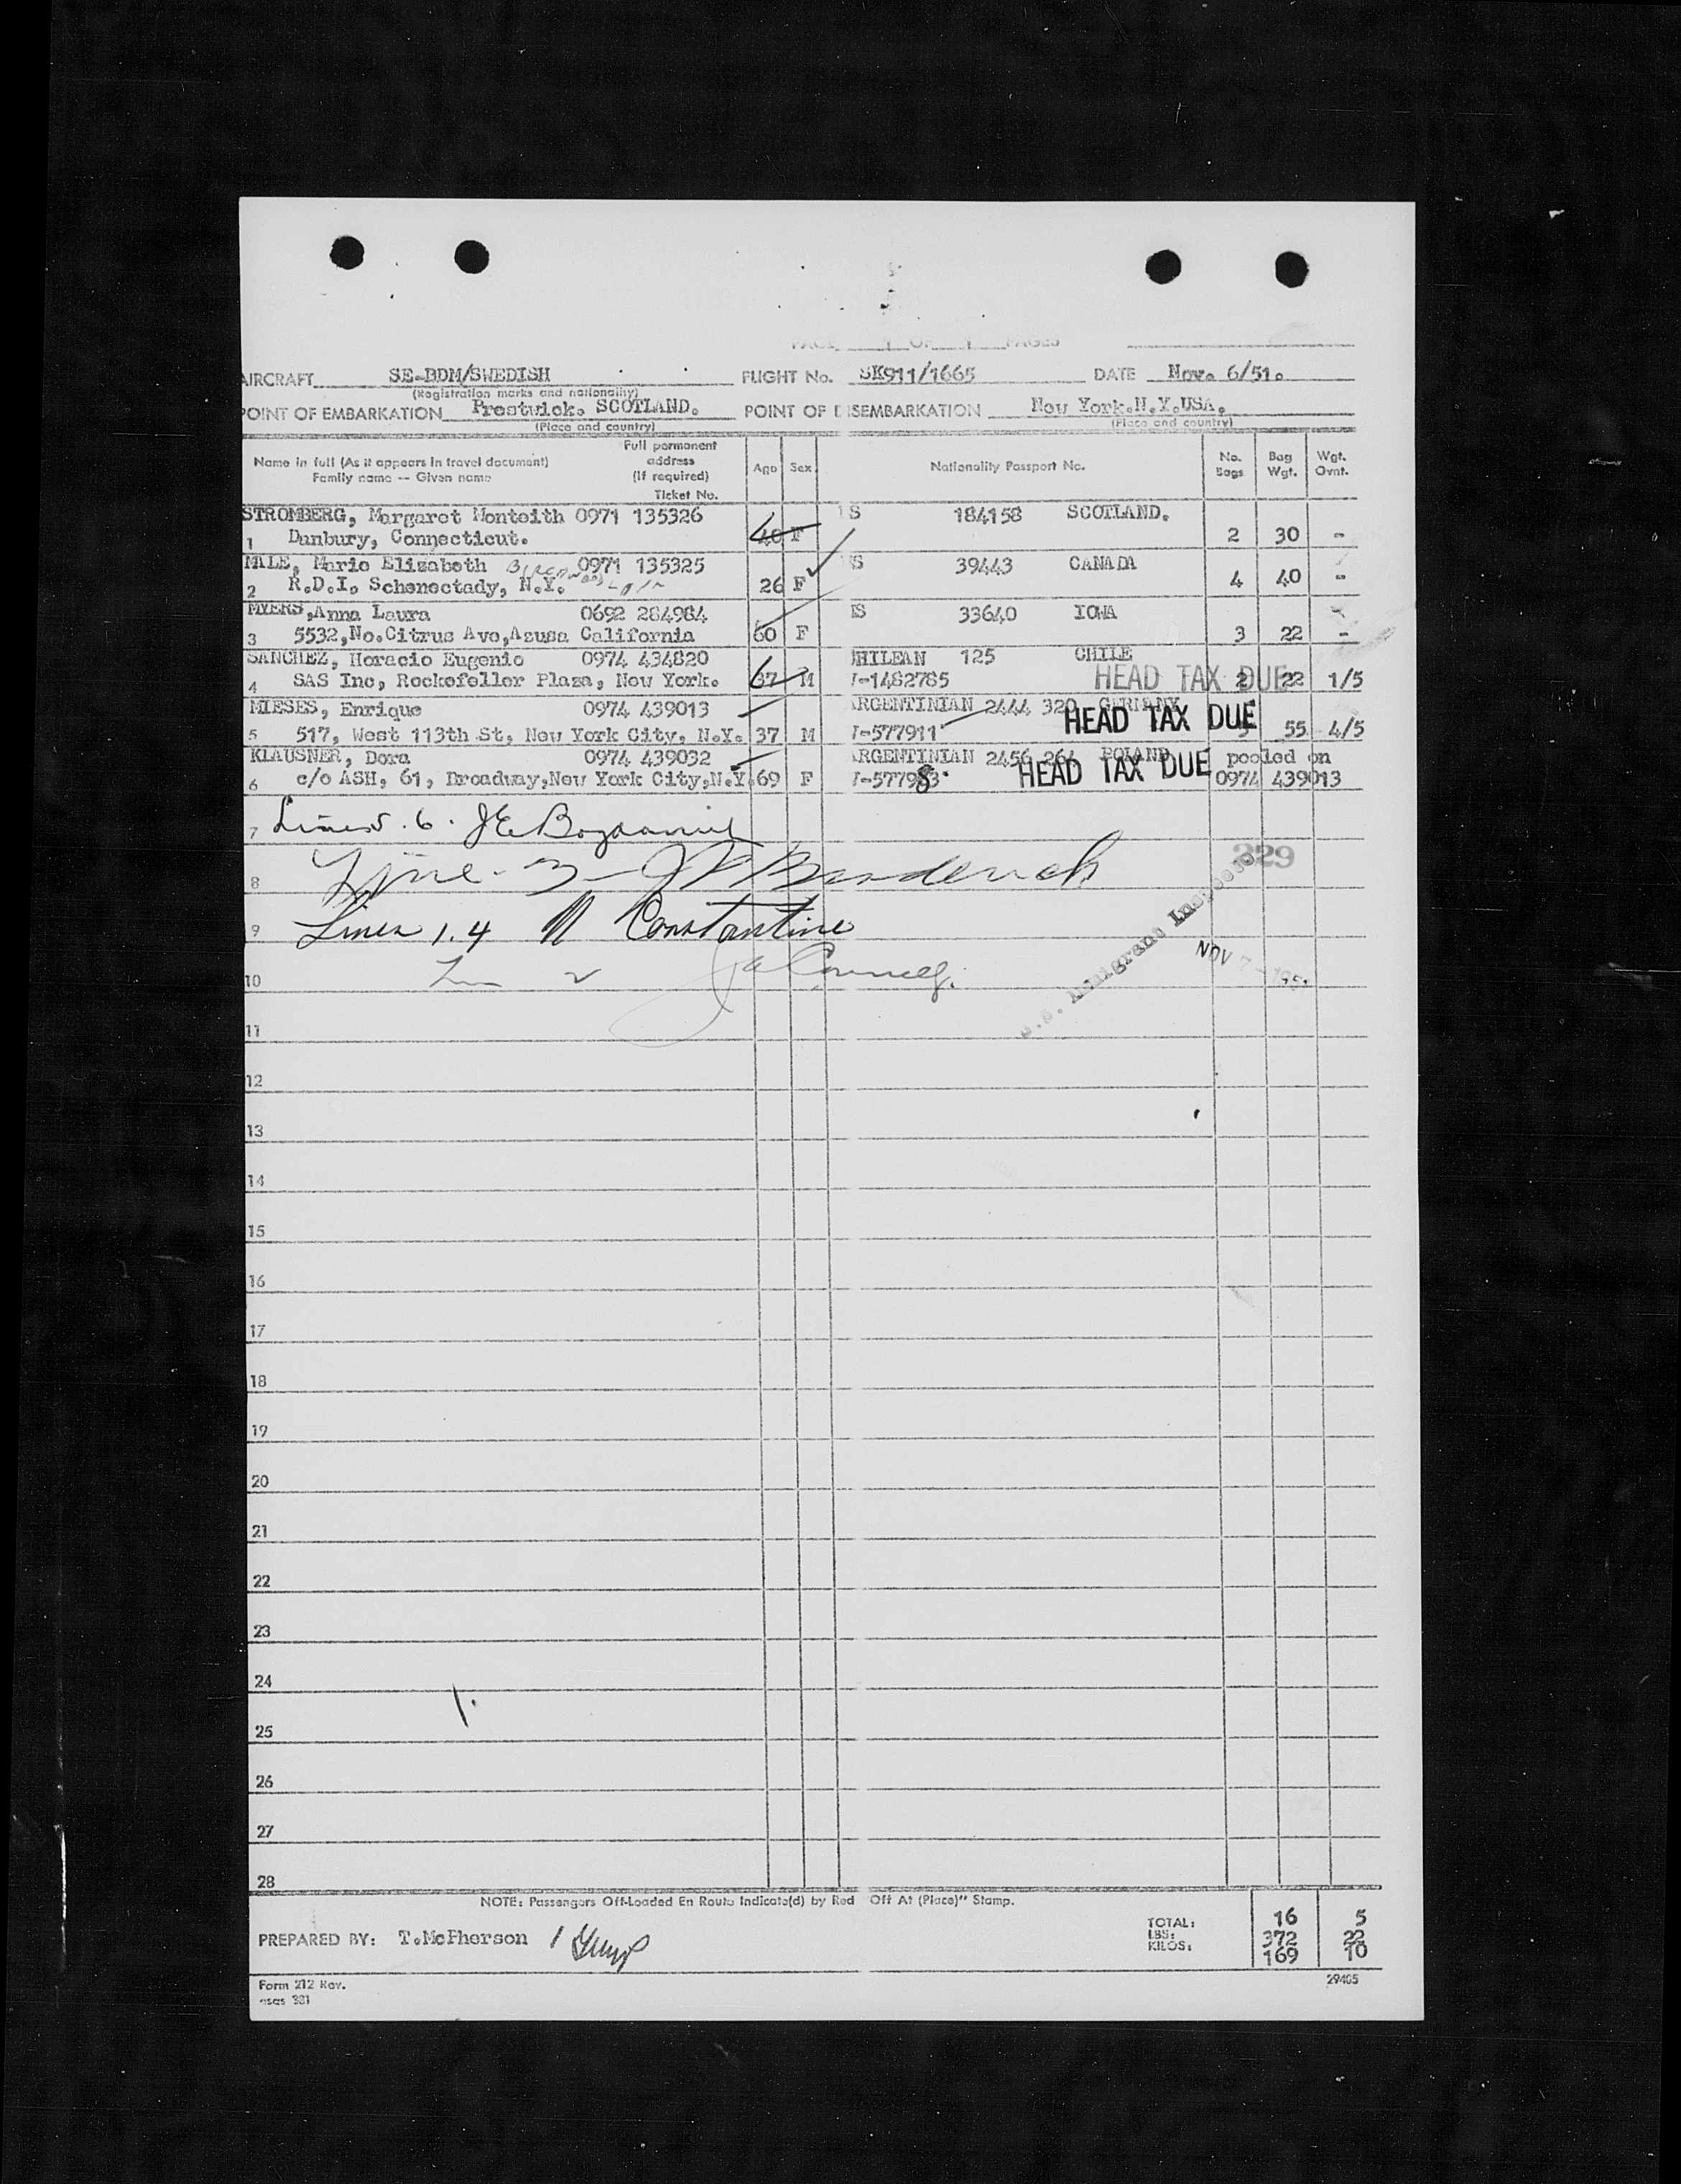 PAGE 1 OF 1 PAGES
AIRCRAFT SE-BDM/SWEDISH FLIGHT No. SK911/1665 DATE Nov. 6/51.
(Registration marks and nationality)
POINT OF EMBARKATION Prestwick. SCOTLAND. POINT OF DISEMBARKATION New York.N.Y.USA.
(Place and country) (Place and country)
Name in full (As it appears in travel document) Family name -- Given name Full permanent address (If required) Ticket No. Age Sex Nationality Passport No. No. Bags Bag Wgt. Wgt. Ovnt.
STROMBERG, Margaret Monteith 0971 135326 US 184158 SCOTLAND.
1 Danbury, Connecticut. 40 F 2 30 -
MALE, Marie Elizabeth 0971 135325 US 39443 CANADA
2 R.D.I. Schenectady, N.Y. 26 F 4 40 -
MYERS,Anna Laura 0692 284984 US 33640 IOWA
3 5532,No.Citrus Ave,Azusa California 60 F 3 22 -
SANCHEZ, Horacio Eugenio 0974 434820 CHILEAN 125 CHILE
4 SAS Inc, Rockefeller Plaza, New York. 37 M V-1482785 HEAD TAX DUE 2 22 1/5
MIESES, Enrique 0974 439013 ARGENTINIAN 2444 320 GERMANY
5 517, West 113th St, New York City, N.Y. 37 M V-577911 HEAD TAX DUE 55 4/5
KLAUSNER, Dora 0974 439032 ARGENTINIAN 2456 264 POLAND pooled on
6 c/o ASH, 61, Broadway,New York City,N.Y. 69 F V-577983 HEAD TAX DUE 0974 439013
7 Lines 5.6.
8 Line - 3 - 329
9 Lines 1.4 M Constantine
U.S. Immigrant Inspector
NOV 7 - 1951
10
11
12
13
14
15
16
17
18
19
20
21
22
23
24
25
26
27
28
NOTE: Passengers Off-Loaded En Route Indicate(d) by Red "Off At (Place)" Stamp.
PREPARED BY: T.McPherson
TOTAL: 16 5
LBS: 372 22
KILOS: 169 10
Form 212 Rev. 29405
381